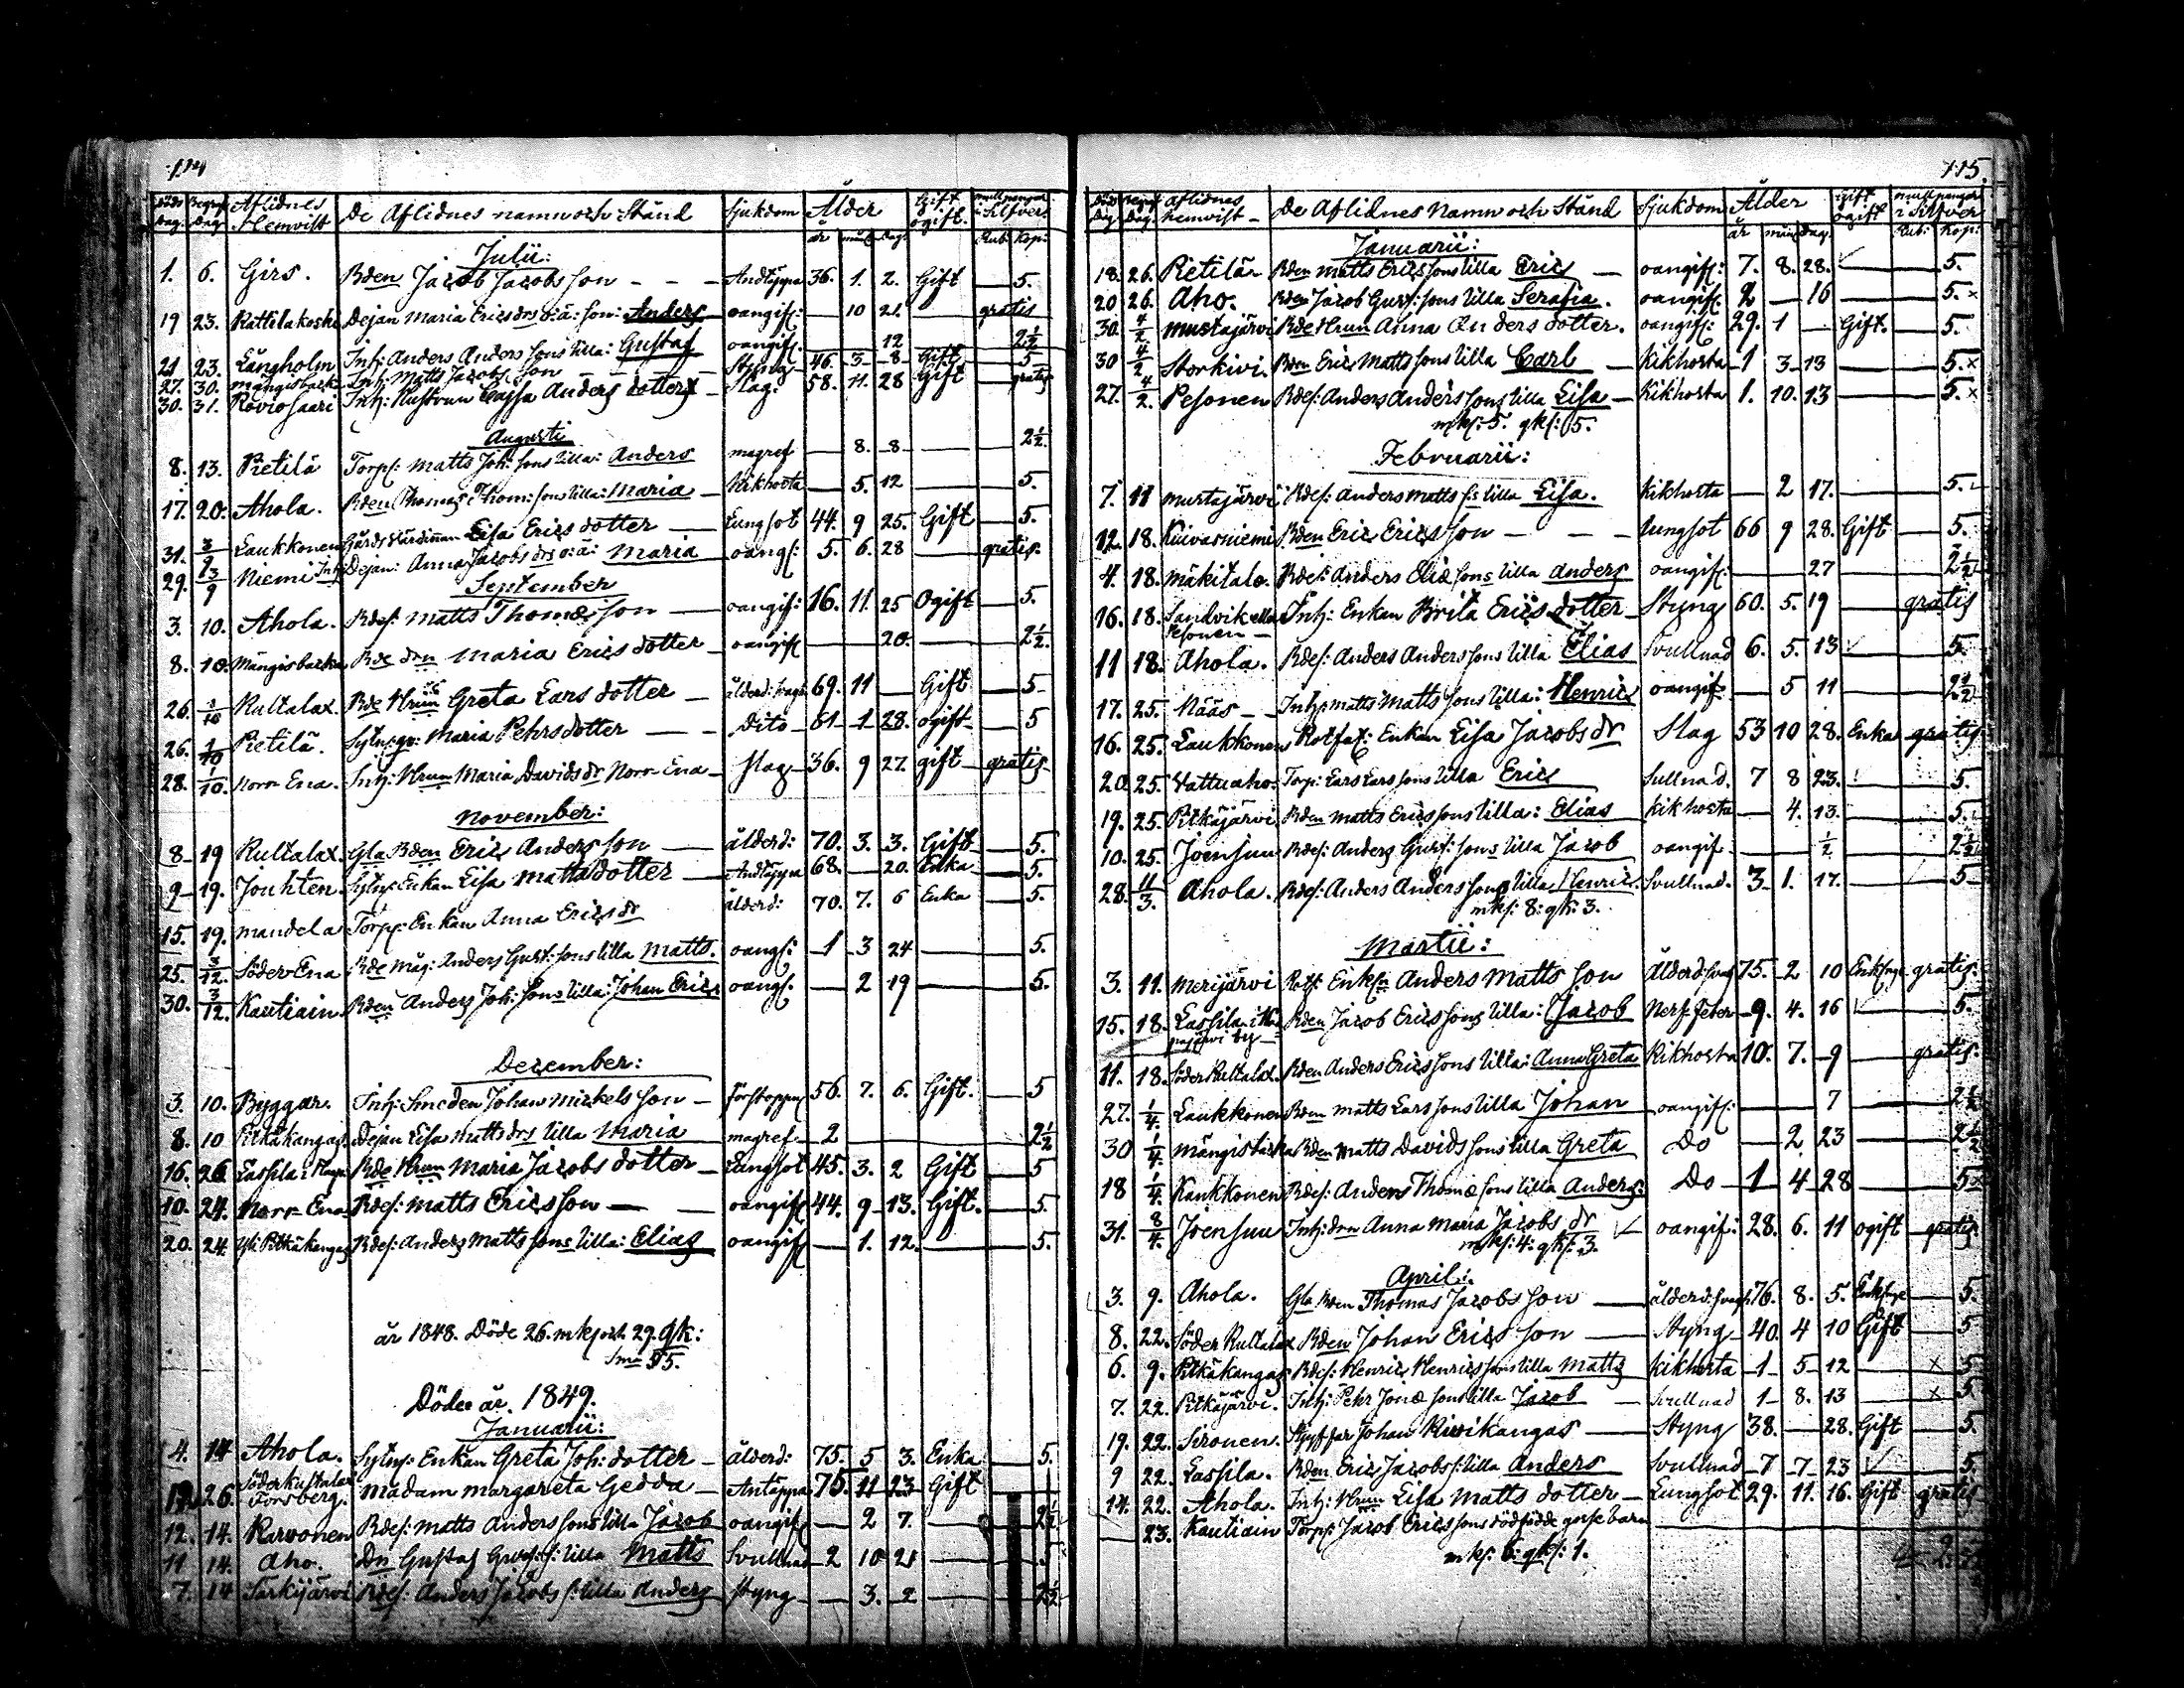 114
Döds Dag. Begraf Dag Aflidnes Hemvist De Aflidnes namn och Stånd Sjukdom Ålder år mån: dag: Gift ogift. mullpengar i Silfver Rub: Kop:
Julii:
1. 6. Girs. Bden Jacob Jacobs son - - - Andtäppa 36. 1. 2. Gift 5.
19 23. Kattilakoski Dejan Maria Erics drs o: ä: son: Anders oangif: 10 21. gratis
21 23. Långholm Inh: Anders Anders sons lilla: Gustaf oangif. 12 2½
27. 30. mängisback Inh: Matts Jacobs son Styng 46. 3 8 Gift 5
30. 31. Roviosaari Inh: Hustrun Cajsa Anders dotter Slag. 58. 11. 28 Gift gratis
Augusti
8. 13. Pietilä Torp: Matts Joh: sons lilla: Anders magref 8. 8 2½.
17. 20. Ahola. Bden Thomas Thom: sons lilla: Maria Kikhosta 5. 12 5.
31. 3/9 Laukkonen Gårds värdinnan Lisa Erics dotter Lungsot 44. 9 25. Gift 5.
29. 13/9 Niemi Inh: Dejan: Anna Jacobs drs o: ä: Maria oangf: 5. 6. 28 gratis.
September
3. 10. Ahola. Bdes: Matts Thomæ son oangif: 16. 11. 25 Ogift 5.
8. 10. Mängisbacka Bde drn Maria Erics dotter oangif 20. 2½.
26. 1/10 Kultalax. Bde Hrun Greta Lars dotter älderd: svagh 69. 11 Gift 5
26. 1/10 Pietilä. Sytn: gu: Maria Pehrs dotter Dito 61 1 28. ogift 5
28. 1/10. Norr Ena. Inh: Hrun Maria Davids dr Norr Ena Slag 36. 9 27. gift gratis
November:
8 19 Kultalax. Gla Bden Eric Anders son älderd: 70. 3. 3. Gift 5.
9 19. Jouhten. Sytn: Enkan Lisa Matts dotter Andtäppa 68. 20. Enka 5.
15. 19. mandela Torp: Enkan Anna Erics dr älderd: 70. 7. 6 Enka 5.
25. 3/12. Söder Ena Bde Måg: Anders Gust: sons lilla Matts. oangf: 1 3 24 5.
30. 3/12. Kautiain Bden Anders Joh: sons lilla: Johan Eric oangf. 2 19 5.
December:
3. 10. Byggar. Inh: Smeden Johan Mickels son förstoppn 56. 7. 6. Gift. 5
8. 10 Pitkäkangas Dejan Lisa Matts drs lilla Maria magref 2 2½
16. 26 Lassila i Kaup Bde Hrun Maria Jacobs dotter Lungsot 45. 3. 2 Gift 5
10. 24. Norr Ena Bdes: Matts Erics son oangif 44. 9 13. Gift. 5.
20. 24. Pitkäkangas Bdes: Anders Matts sons lilla: Elias oangif 1. 12. 5.
år 1848. Döde 26. mk och 29. qk:
Sma 55.
Döde år. 1849.
Januarii:
4. 14 Ahola. Sytn: Enkan Greta Joh: dotter älderd: 75. 5 3. Enka 5.
26. Söderkultalax Tonsberg. Madam Margareta Gedda Antäppa 75. 11 23 Gift
12. 14. Karvonen Bdes: Matts Anders sons lilla Jacob oangif 2 7. 2½
11 14. Aho. Dn Gustaf Gust: s: lilla Matts Svullnad 2 10 21 5
7. 14 Särkijärvi Bdes: Anders Jacobs s: lilla Anders styng 3. 2 2½
115.
Döds Dag Begraf Dag. aflidnes hemvist De Aflidnes Namn och Stånd Sjukdom Ålder år mån dag. gift ogift mullpengar i Silfver Rub: Kop:
Januarii:
18. 26. Pietilä Bden Matts Erics sons lilla Eric oangif: 7. 8. 28. 5.
20 26. Aho. Bden Jacob Gust: sons lilla Serafia. oangif. 2 16 5. ×
30. 4/2. mustajärvi Bde Hrun Anna Anders dotter. oangif: 29. 1 Gift. 5
30 4/2 Storkivi. Bden Eric Matts sons lilla Carl Kikhosta 1 3 13 5. ×
27. 4/2. Pesonen Bdes: Anders Anders sons lilla Lisa Kikhosta 1. 10. 13 5. ×
mks: 5. qks: 5.
Februarii:
7. 11 mustajärvi Bdes: Anders Matts s: lilla Lisa. Kikhosta 2 17. 5.
12. 18. Kuivasniemi Bden Eric Erics son - - - lungsot 66 9 28. Gift 5.
4. 18. mäkitalo. Bdes: Anders Eliæ sons lilla Anders oangif: 27 2½
16. 18. Sandvik eller Pesonen Inh: Enkan Brita Erics dotter Styng 60. 5. 19 gratis
11 18. Ahola. Bdes: Anders Anders sons lilla Elias Svullnad 6. 5. 13 5.
17. 25. Nääs - Inh: Matts Matts sons lilla: Henric oangif. 5 11 2½
16. 25. Laukkonen Rotfat: Enkan Lisa Jacobs dr Slag 53 10 28. Enka gratis
20. 25. Vattuaho Torp: Lars Lars sons lilla Eric Sullnad. 7 8 23. 5.
19. 25. Pitkäjärvi Bden Matts Erics sons lilla: Elias Kikhosta 4. 13. 5.
10. 25. Joensuu Bdes: Anders Gust: sons lilla Jacob oangif. ½ 2½
28. 11/3. Ahola. Bdes: Anders Anders sons lilla Henric. Svullnad. 3 1. 17. 5
mks: 8: qk: 3.
Martii:
3. 11. merijärvi Rotf: Enkln Anders Matts son Ålderd: svag 75. 2 10 Enkling gratis.
15. 18. Lassila i by Bden Jacob Erics sons lilla: Jacob Nerf. feber 9. 4. 16 5.
11. 18. Söder Kultalax. Bden Anders Erics sons lilla: Anna Greta Kikhosta 10. 7. 9 gratis.
27. 1/4. Laukkonen Bden Matts Lars sons lilla Johan oangif: 7 2½
30 1/4. mängisbacka Bden Matts Davids sons lilla Greta Do 2 23 2½
18 1/4. Kaukkonen Bdes: Anders Thomæ sons lilla Anders: Do 1 4 28 5×
31. 8/4. Joensuu Inh: drn Anna Maria Jacobs dr oangif: 28. 6. 11 ogift gratis
mks: 4: qks: 3.
April:
3. 9. Ahola. Gla Bden Thomas Jacobs son älderd: svagh. 76. 8. 5. Enkling 5.
8. 22. Söder Kultalax Bden Johan Erics son Styng 40. 4 10 Gift 5
6. 9. Pitkäkangas Bdes: Henric Henrics sons lilla Matts Kikhosta 1 5 12 × 5
7. 22. Pitkäjärvi. Inh: Pehr Jonæ sons lilla Jacob Svullnad 1 8. 13 × 5
19. 22. Sironen. Styffar Johan Kivikangas Styng 38. 28. Gift 5.
9 22. Lassila. Bden Eric Jacobs s: lilla Anders Svullnad 7 7 23 5.
14. 22. Ahola. Inh: Hrun Lisa Matts dotter Lungsot 29. 11. 16. Gift gratis
23. Kautiain Torp: Jacob Erics sons dödfödde gosse barn
mks: 6: qks: 1.